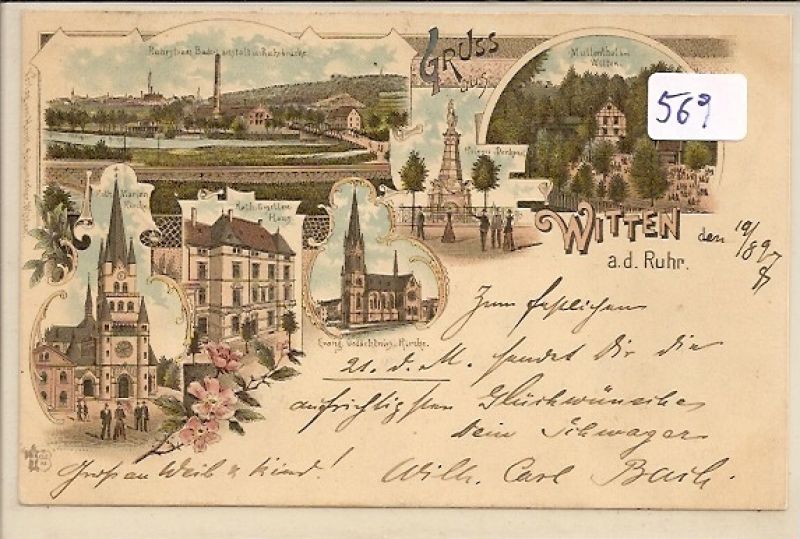 Ruhrstrom Bade-Anstalt u. Ruhrbrücke.
GRUSS
aus
Mullenthal bei
Witten.
569
Krieger Denkmal
Kath. Marien
Kirche
Kath. Gesellen
Haus
WITTEN
a.d. Ruhr.
den 19/8 97
Evang. Gedächtnis-Kirche.
Zum festlichen
21. d. M. sendet Dir die
aufrichtigsten Glückwünsche
Dein Schwager
Wilh. Carl Bach.
Gruß an Weib u Kind!